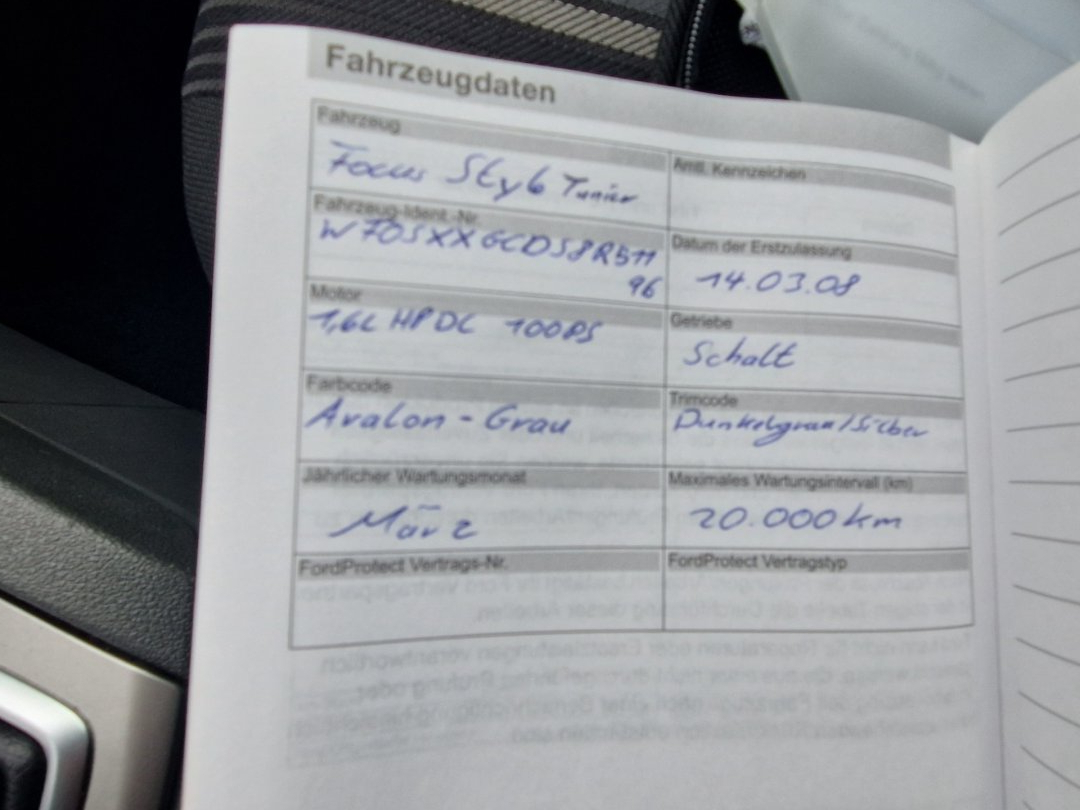 Fahrzeugdaten
Fahrzeug
Focus Style Turnier
Amtl. Kennzeichen
Fahrzeug-Ident.-Nr.
WF0SXXGCDS8R511
96
Datum der Erstzulassung
14.03.08
Motor
1,6L HPDC 100PS
Getriebe
Schalt
Farbcode
Avalon-Grau
Trimcode
Dunkelgrau/Silber
Jährlicher Wartungsmonat
März
Maximales Wartungsintervall (km)
20.000km
FordProtect Vertrags-Nr.
FordProtect Vertragstyp